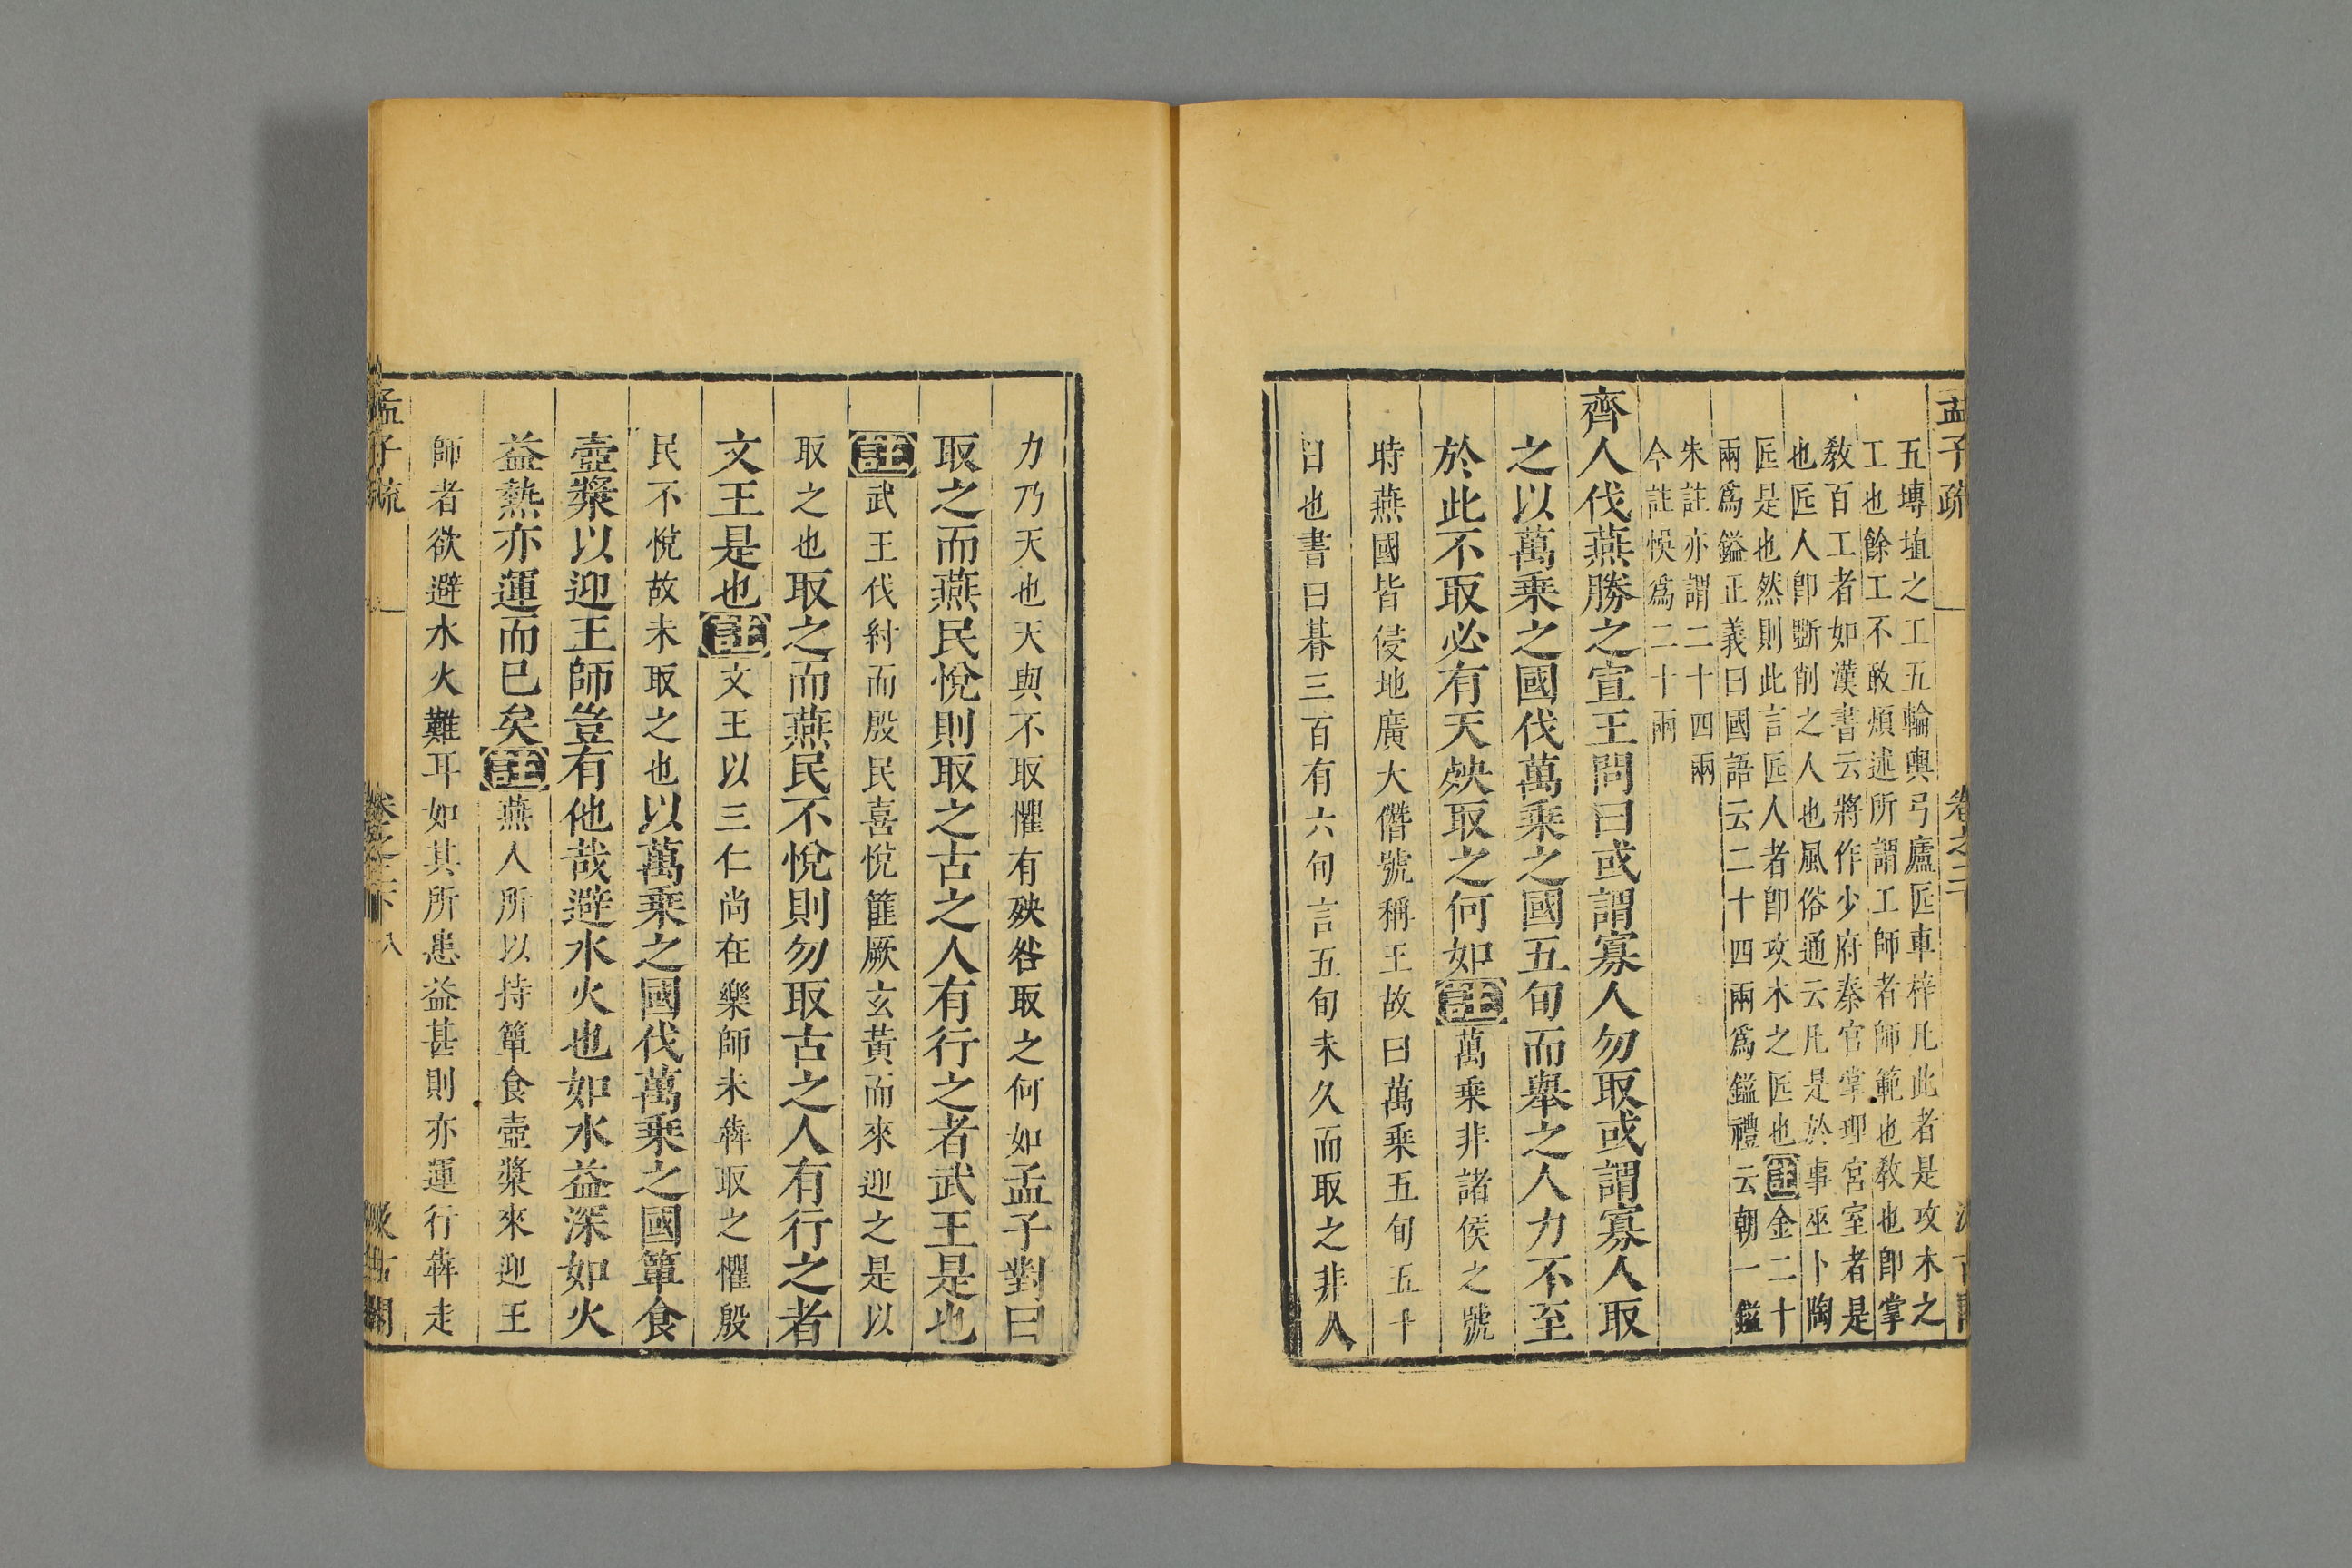 孟子疏 卷之二
五塼埴之工五輪輿弓廬匠車梓凡此者是攻木之
工也餘工不敢煩述所謂工師者師範也教也卽掌
教百工者如漢書云將作少府秦官掌理宮室者是
也匠人卽斵削之人也風俗通云凡是於事巫卜陶
匠是也然則此言匠人者卽攻木之匠也註金二十
兩爲鎰正義曰國語云二十四兩爲鎰禮云朝一鎰
朱註亦謂二十四兩
今註悞爲二十兩
齊人伐燕勝之宣王問曰或謂寡人勿取或謂寡人取
之以萬乘之國伐萬乘之國五旬而舉之人力不至
於此不取必有天殃取之何如註萬乘非諸侯之號
時燕國皆侵地廣大僭號稱王故曰萬乘五旬五十
日也書曰朞三百有六旬言五旬未久而取之非人
力乃天也天與不取懼有殃咎取之何如孟子對曰
取之而燕民悅則取之古之人有行之者武王是也
註武王伐紂而殷民喜悅篚厥玄黃而來迎之是以
取之也取之而燕民不悅則勿取古之人有行之者
文王是也註文王以三仁尚在樂師未犇取之懼殷
民不悅故未取之也以萬乘之國伐萬乘之國簞食
壺漿以迎王師豈有他哉避水火也如水益深如火
益熱亦運而已矣註燕人所以持簞食壺漿來迎王
師者欲避水火難耳如其所患益甚則亦運行犇走
孟子疏 卷之二下 八 汲古閣